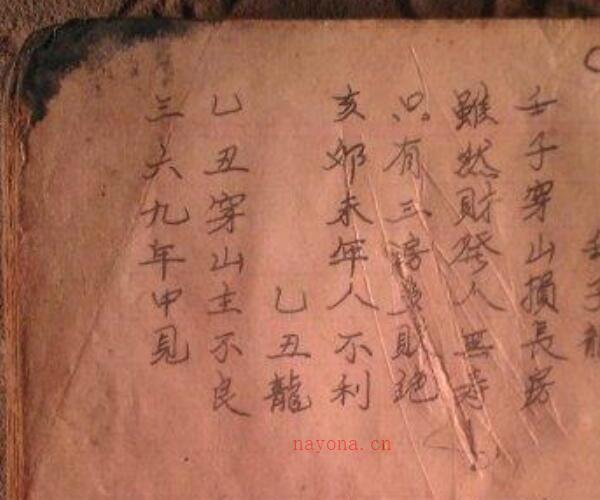 壬子龍
壬子穿山損長房
雖然財發人無寿
只有三房多財
亥卯未年人不利
乙丑龍
乙丑穿山主不良
三六九年中見
nayona.cn